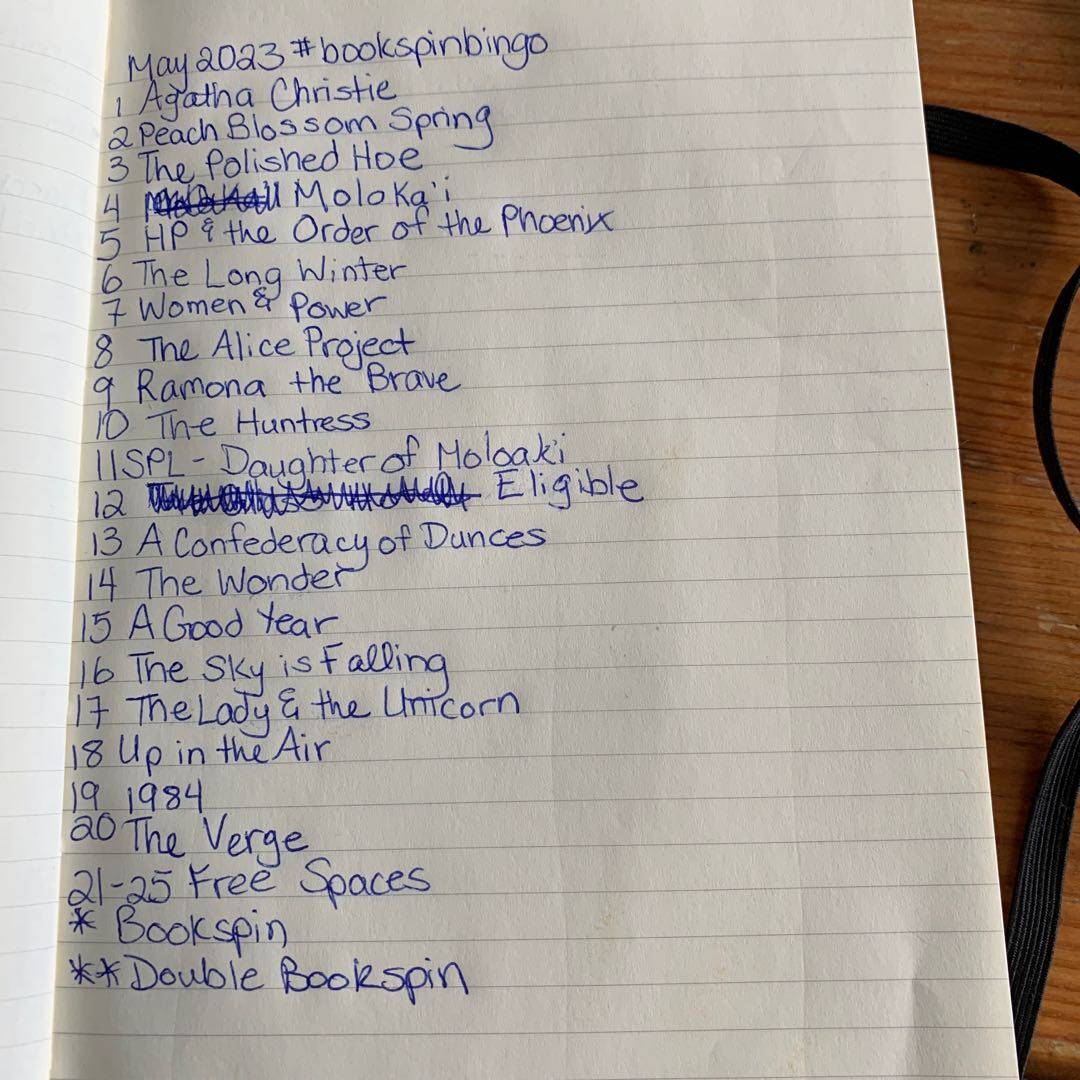 May 2023 #bookspinbingo
1 Agatha Christie
2 Peach Blossom Spring
3 The Polished Hoe
4 Moloka'i
5 HP & the Order of the Phoenix
6 The Long Winter
7 Women & Power
8 The Alice Project
9 Ramona the Brave
10 The Huntress
11 SPL - Daughter of Moloaki
12 Eligible
13 A Confederacy of Dunces
14 The Wonder
15 A Good Year
16 The Sky is Falling
17 The Lady & the Unicorn
18 Up in the Air
19 1984
20 The Verge
21-25 Free Spaces
* Bookspin
** Double Bookspin